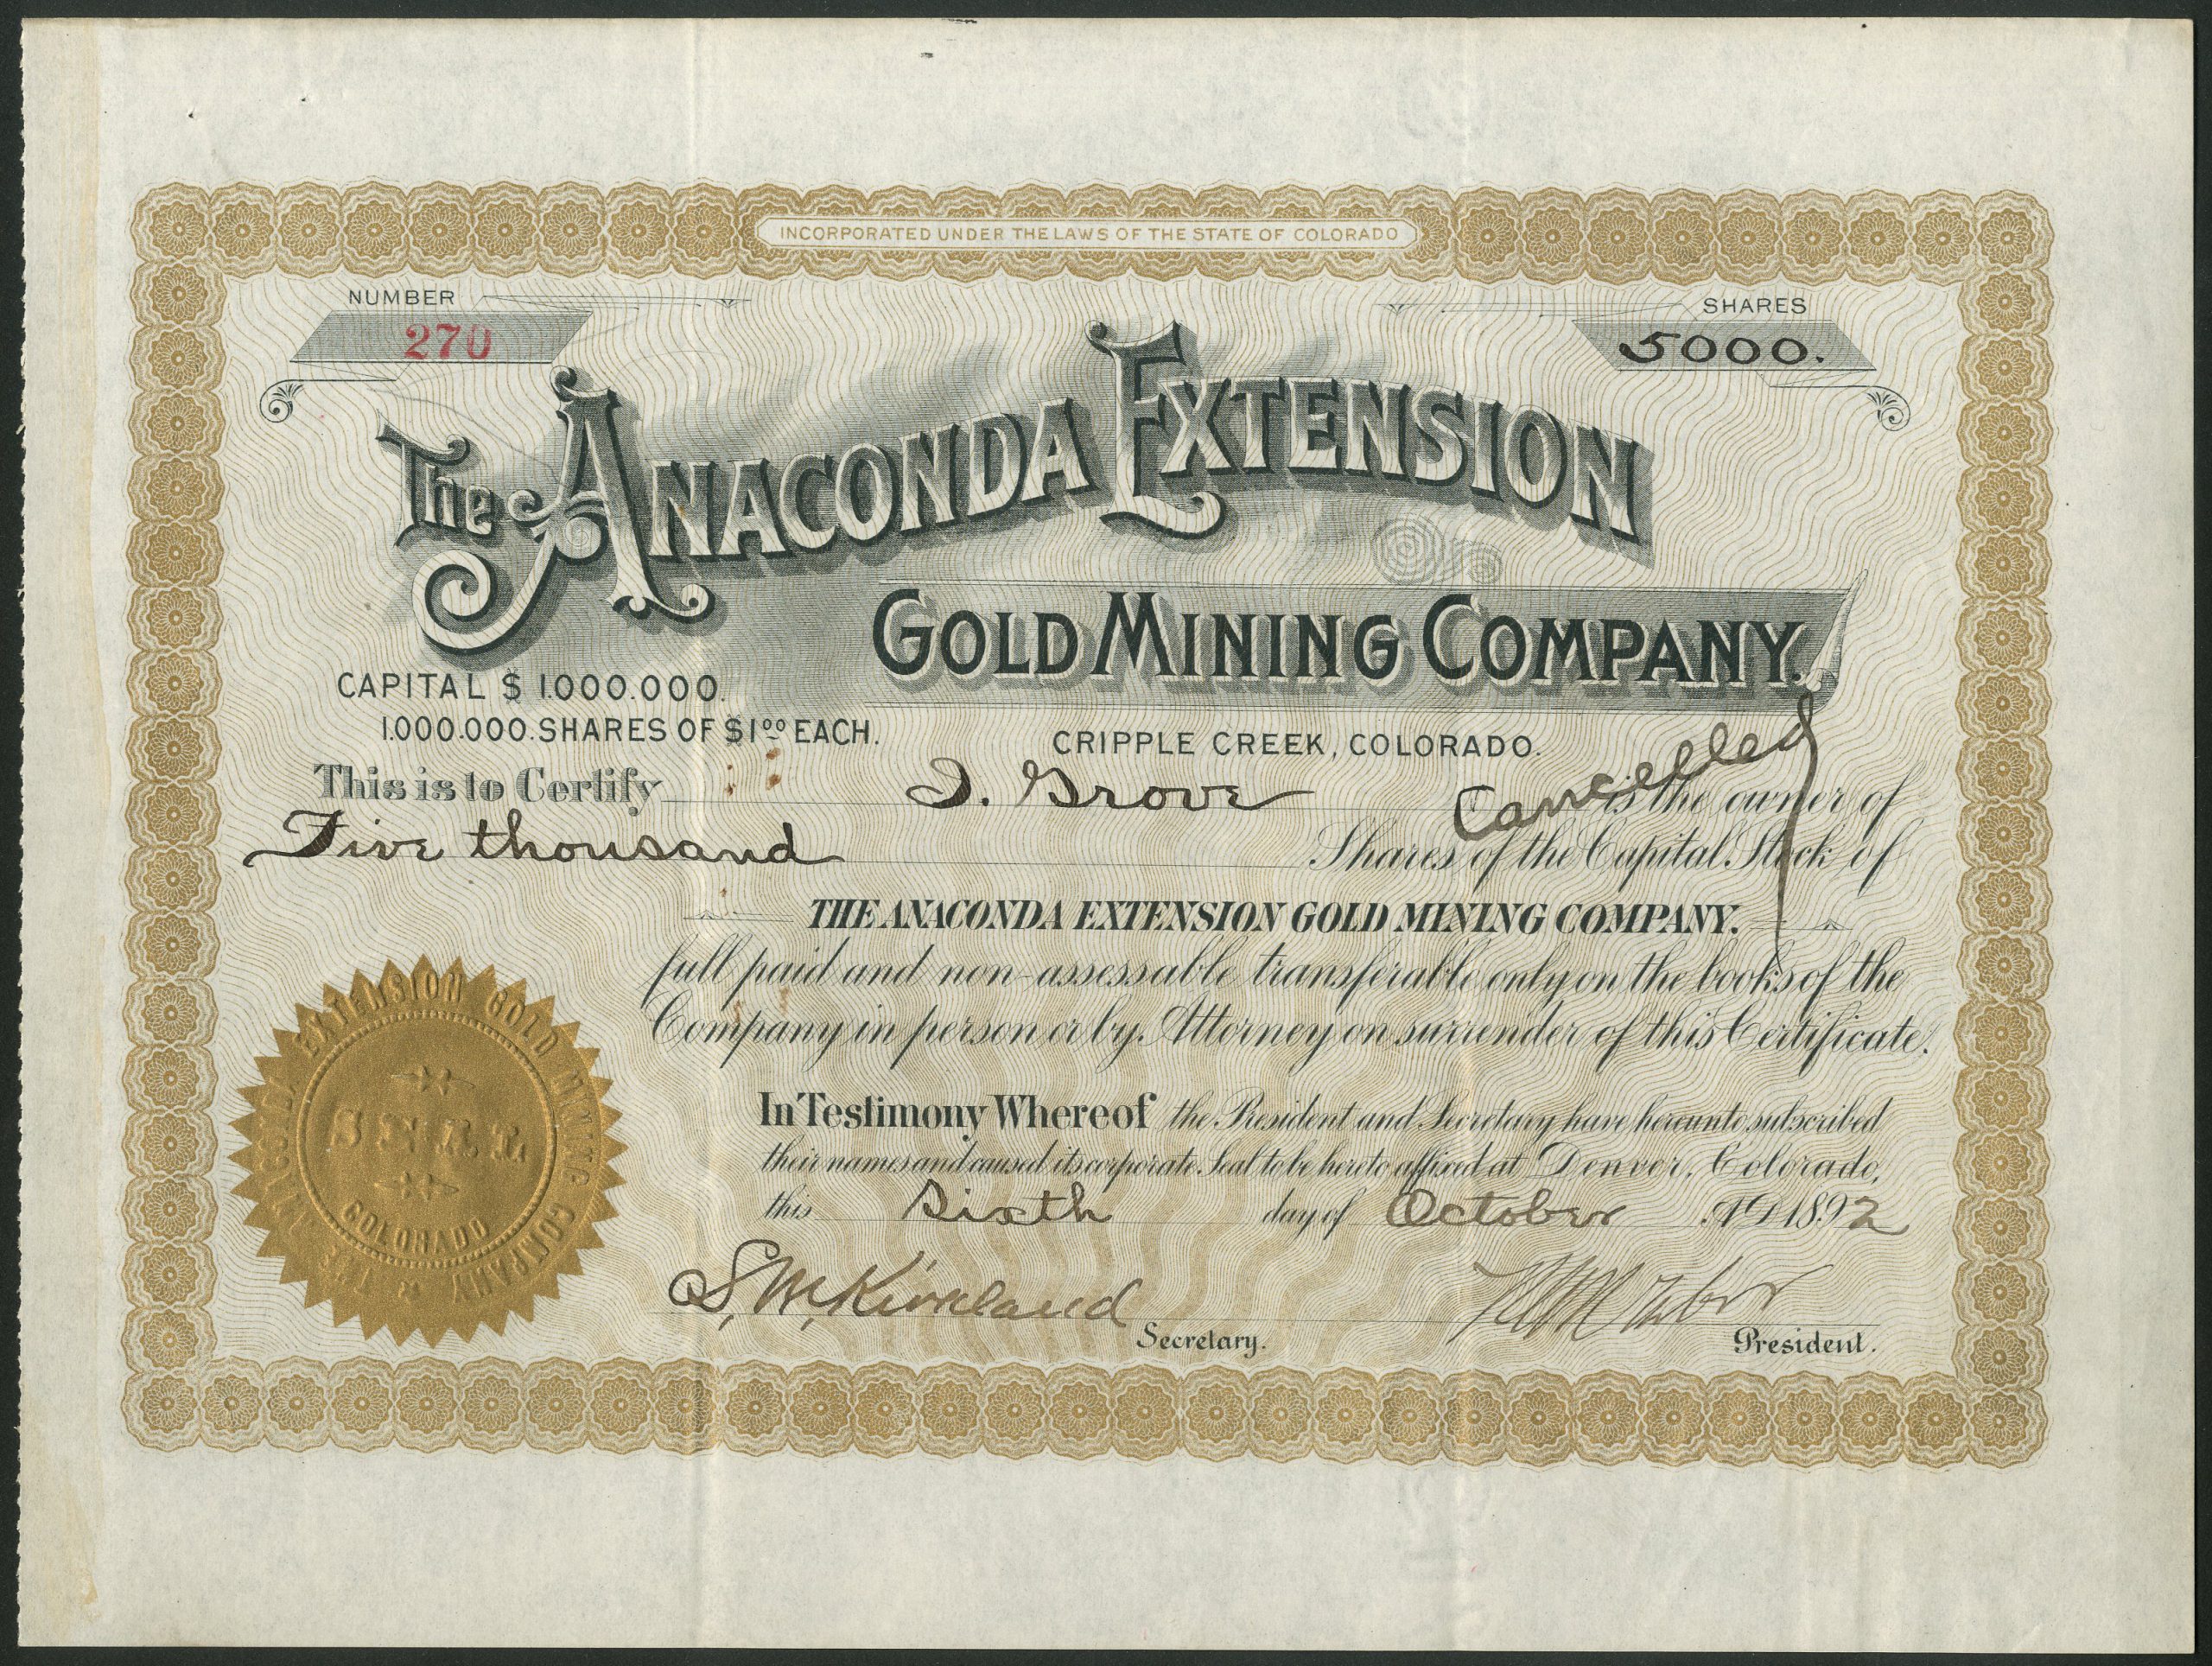 INCORPORATED UNDER THE LAWS OF THE STATE OF COLORADO
NUMBER
270
SHARES
5000.
The ANACONDA EXTENSION
GOLD MINING COMPANY.
CAPITAL $ 1.000.000.
1.000.000. SHARES OF $1.00 EACH.
CRIPPLE CREEK, COLORADO.
Cancelled
This is to Certify I. Grove is the owner of
Five thousand Shares of the Capital Stock of
THE ANACONDA EXTENSION GOLD MINING COMPANY.
full paid and non-assessable transferable only on the books of the
Company in person or by Attorney on surrender of this Certificate.
In Testimony Whereof the President and Secretary have hereunto subscribed
their names and caused its corporate Seal to be hereto affixed at Denver, Colorado,
this Sixth day of October A.D. 1892
S. M. Kirkland
Secretary.
President.
THE ANACONDA EXTENSION GOLD MINING COMPANY &
SEAL
COLORADO